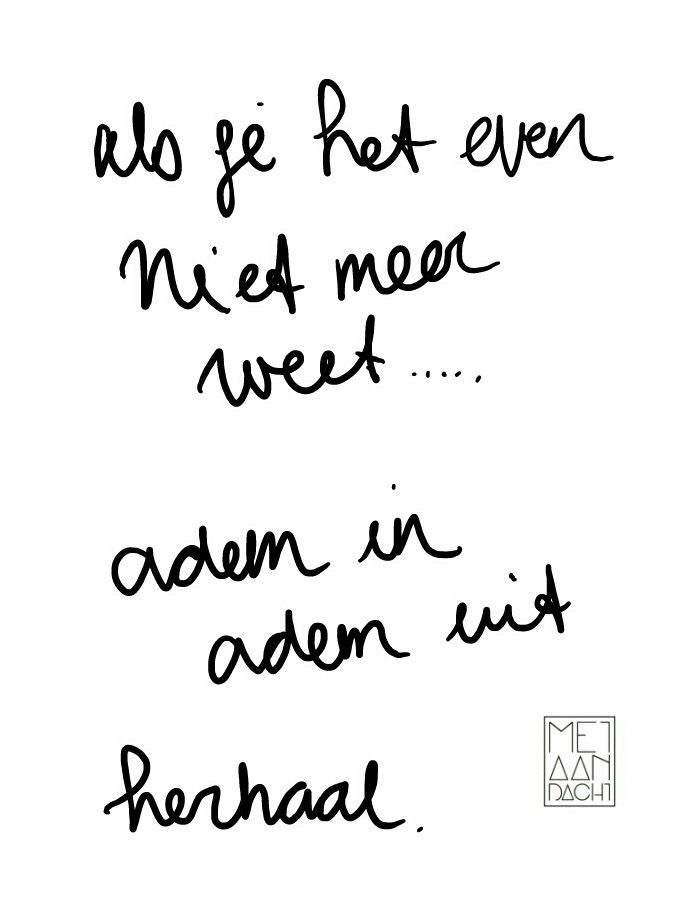 als je het even
niet meer
weet.....
adem in
adem uit
herhaal.
MET
AAN
DACHT